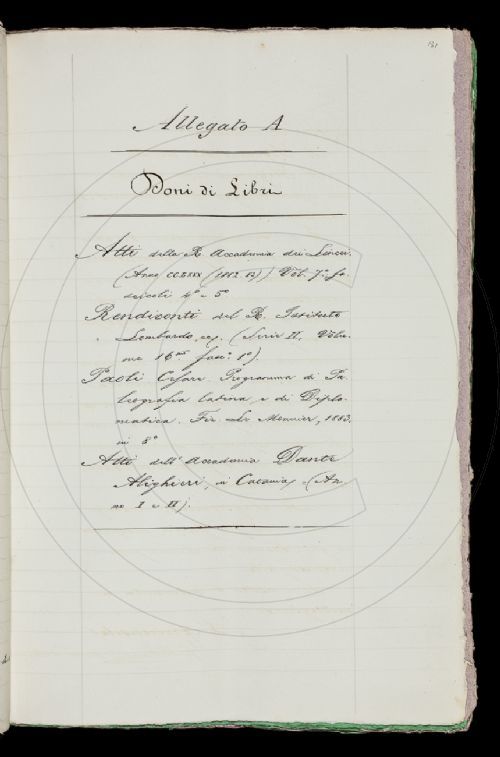 131
Allegato A
Doni di Libri
Atti della R. Accademia dei Lincei.
(Anno CCLXXX (1882-83)) Vol. 7°. fa-
scicoli 4° e 5°
Rendiconti del R. Istituto
Lombardo, (Serie II, Volu-
me 16mo fasc.° 1°).
Paoli Cesare. Programma di Pa-
leografia latina e di Diplo-
matica. Fir. Le Monnier, 1883,
in 8°
Atti dell' Accademia Dante
Alighieri, in Catania, (An-
no I e II).